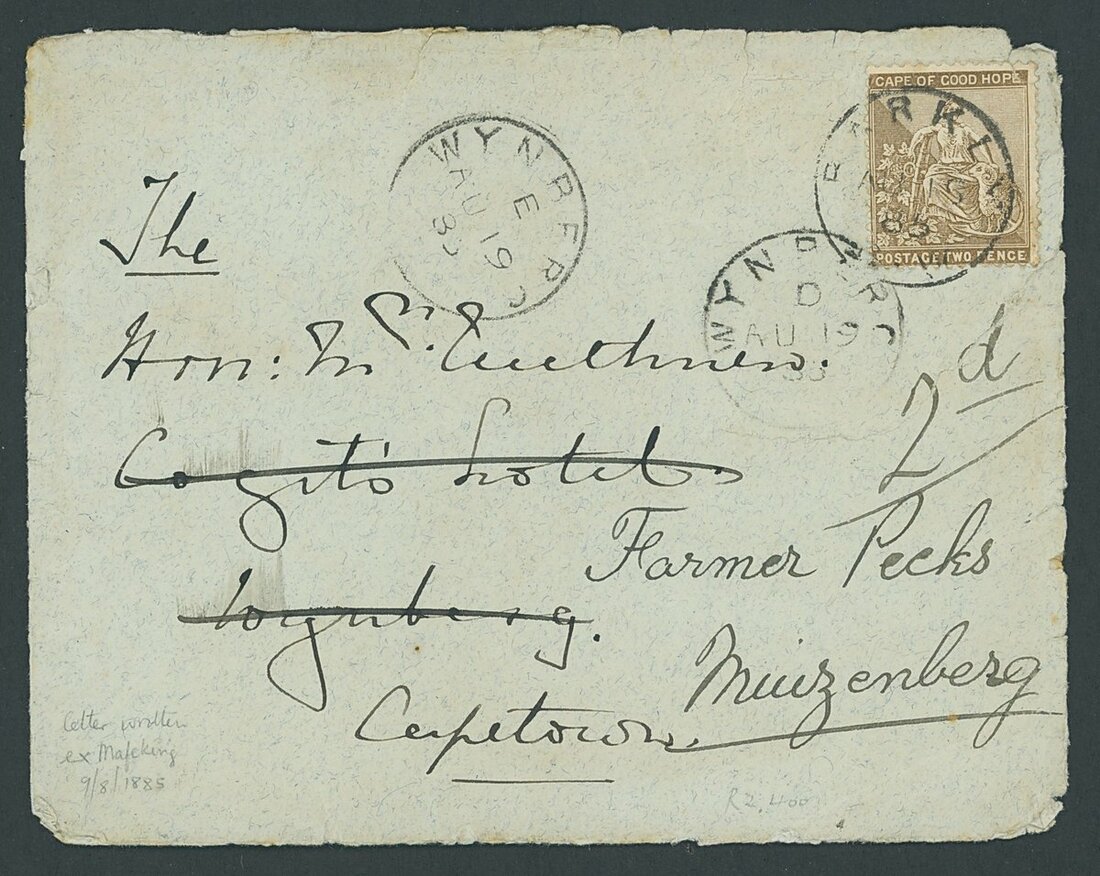 CAPE OF GOOD HOPE
POSTAGE TWO PENCE
BARKLY
85
WYNBERG
E
AU 19
WYNBERG
D
AU 19
85
The
Hon: Mrs
2d
Cogill's Hotel.
Farmer Pecks
Wynberg.
Muizenberg
Capetown.
Letter written
ex Mafeking
9/8/1885
R2,400